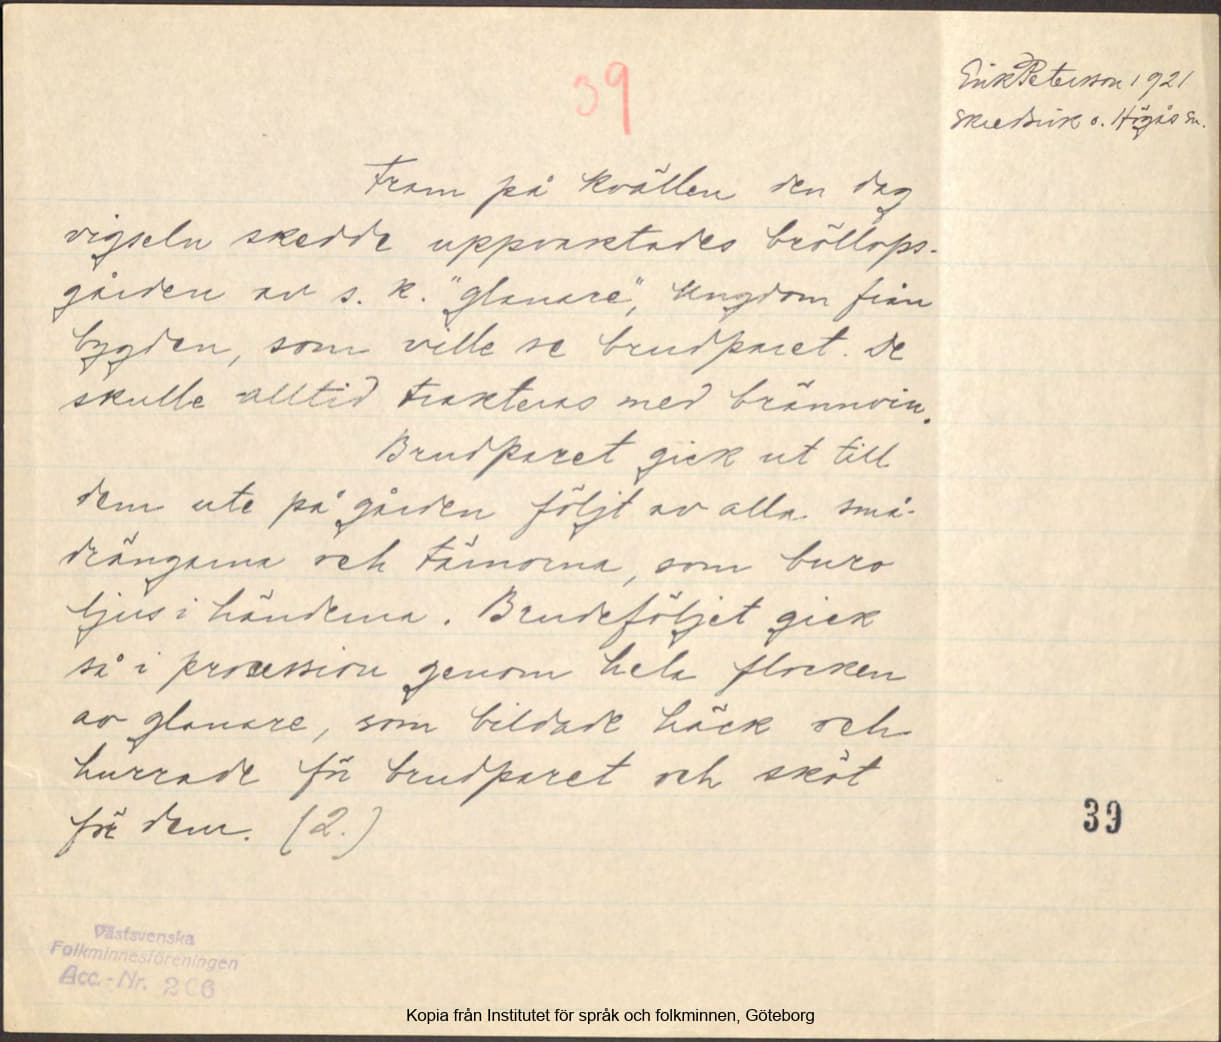 39
Erik Peterson 1921
Skredsvik o. Högås sn.
Fram på kvällen den dag
vigseln skedde uppvaktades bröllops-
gården av s. k. "glanare", ungdom från
bygden, som ville se brudparet. De
skulle alltid trakteras med brännvin.
Brudparet gick ut till
dem ute på gården följt av alla små-
drängarna och tärnorna, som buro
ljus i händerna. Brudeföljet gick
så i procession genom hela flocken
av glanare, som bildade häck och
hurrade för brudparet och sköt
för dem. (2.)
39
Västsvenska
Folkminnesföreningen
Acc.-Nr. 206
Kopia från Institutet för språk och folkminnen, Göteborg